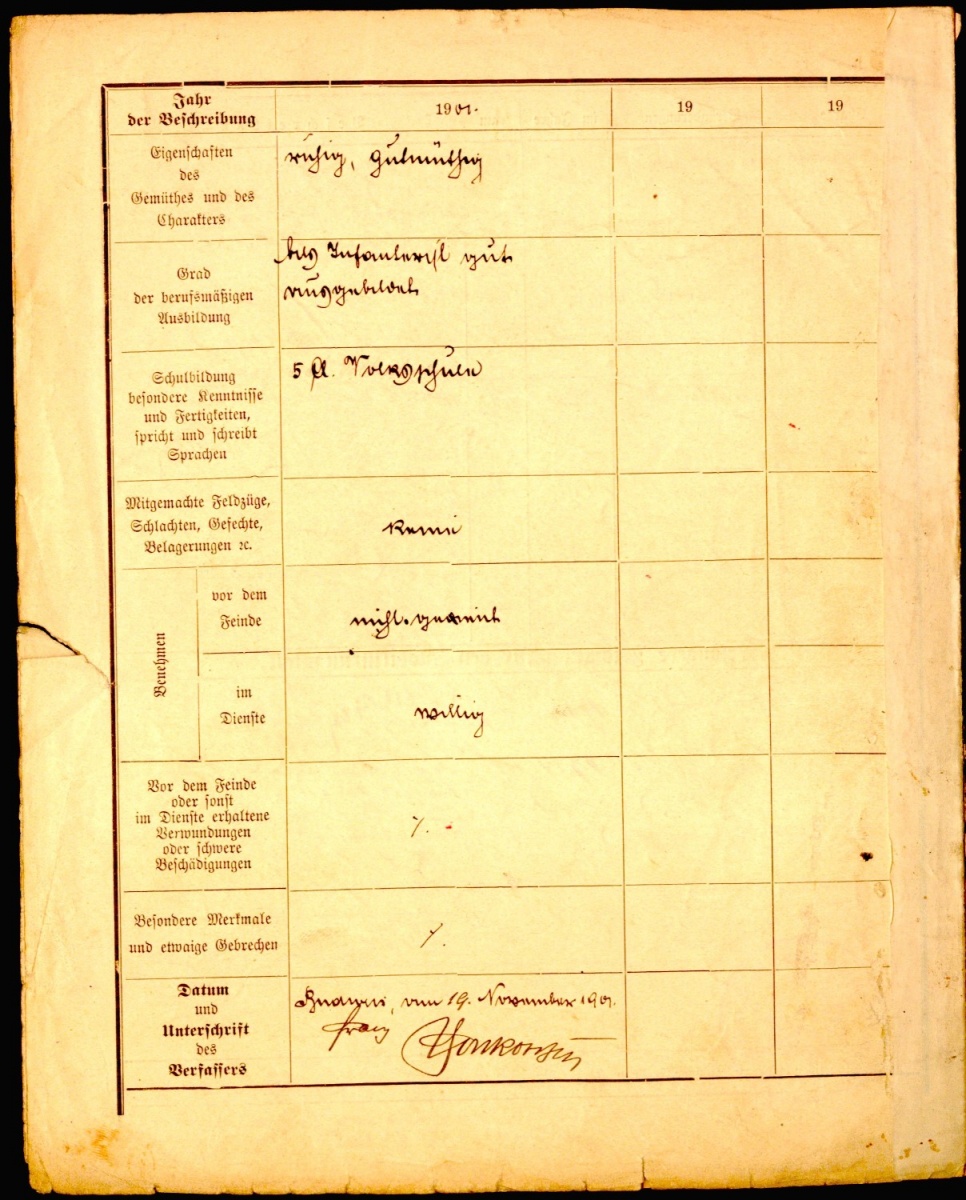 Jahr
der Beschreibung
1901.
19
19
Eigenschaften
des
Gemüthes und des
Charakters
ruhig, gutmüthig
Grad
der berufsmäßigen
Ausbildung
als Infanterist gut
ausgebildet
Schulbildung
besondere Kenntnisse
und Fertigkeiten,
spricht und schreibt
Sprachen
5 Cl. Volksschule
Mitgemachte Feldzüge,
Schlachten, Gefechte,
Belagerungen ꝛc.
keine
Benehmen
vor dem
Feinde
nicht gedient
im
Dienste
willig
Vor dem Feinde
oder sonst
im Dienste erhaltene
Verwundungen
oder schwere
Beschädigungen
/.
Besondere Merkmale
und etwaige Gebrechen
/.
Datum
und
Unterschrift
des
Verfassers
am 19. November 1901.
Franz